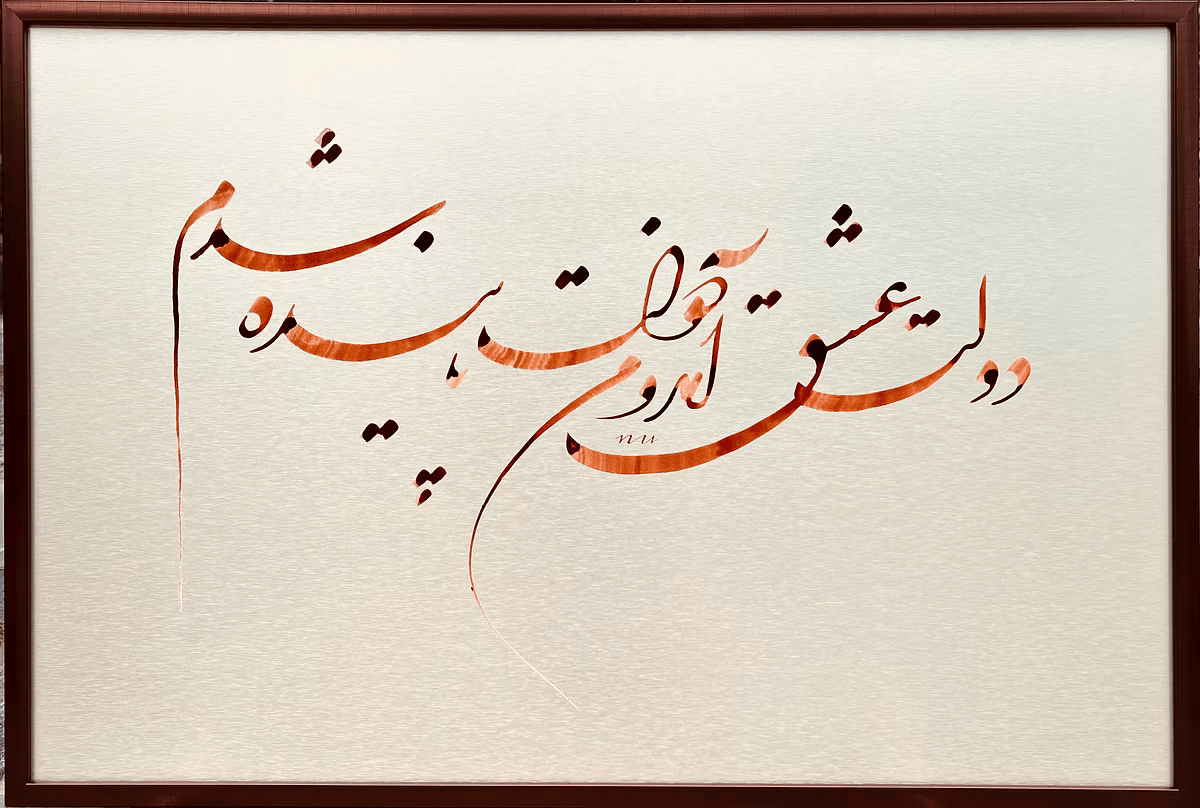 دولت عشق آمد و من دولت پاینده شدم
nu